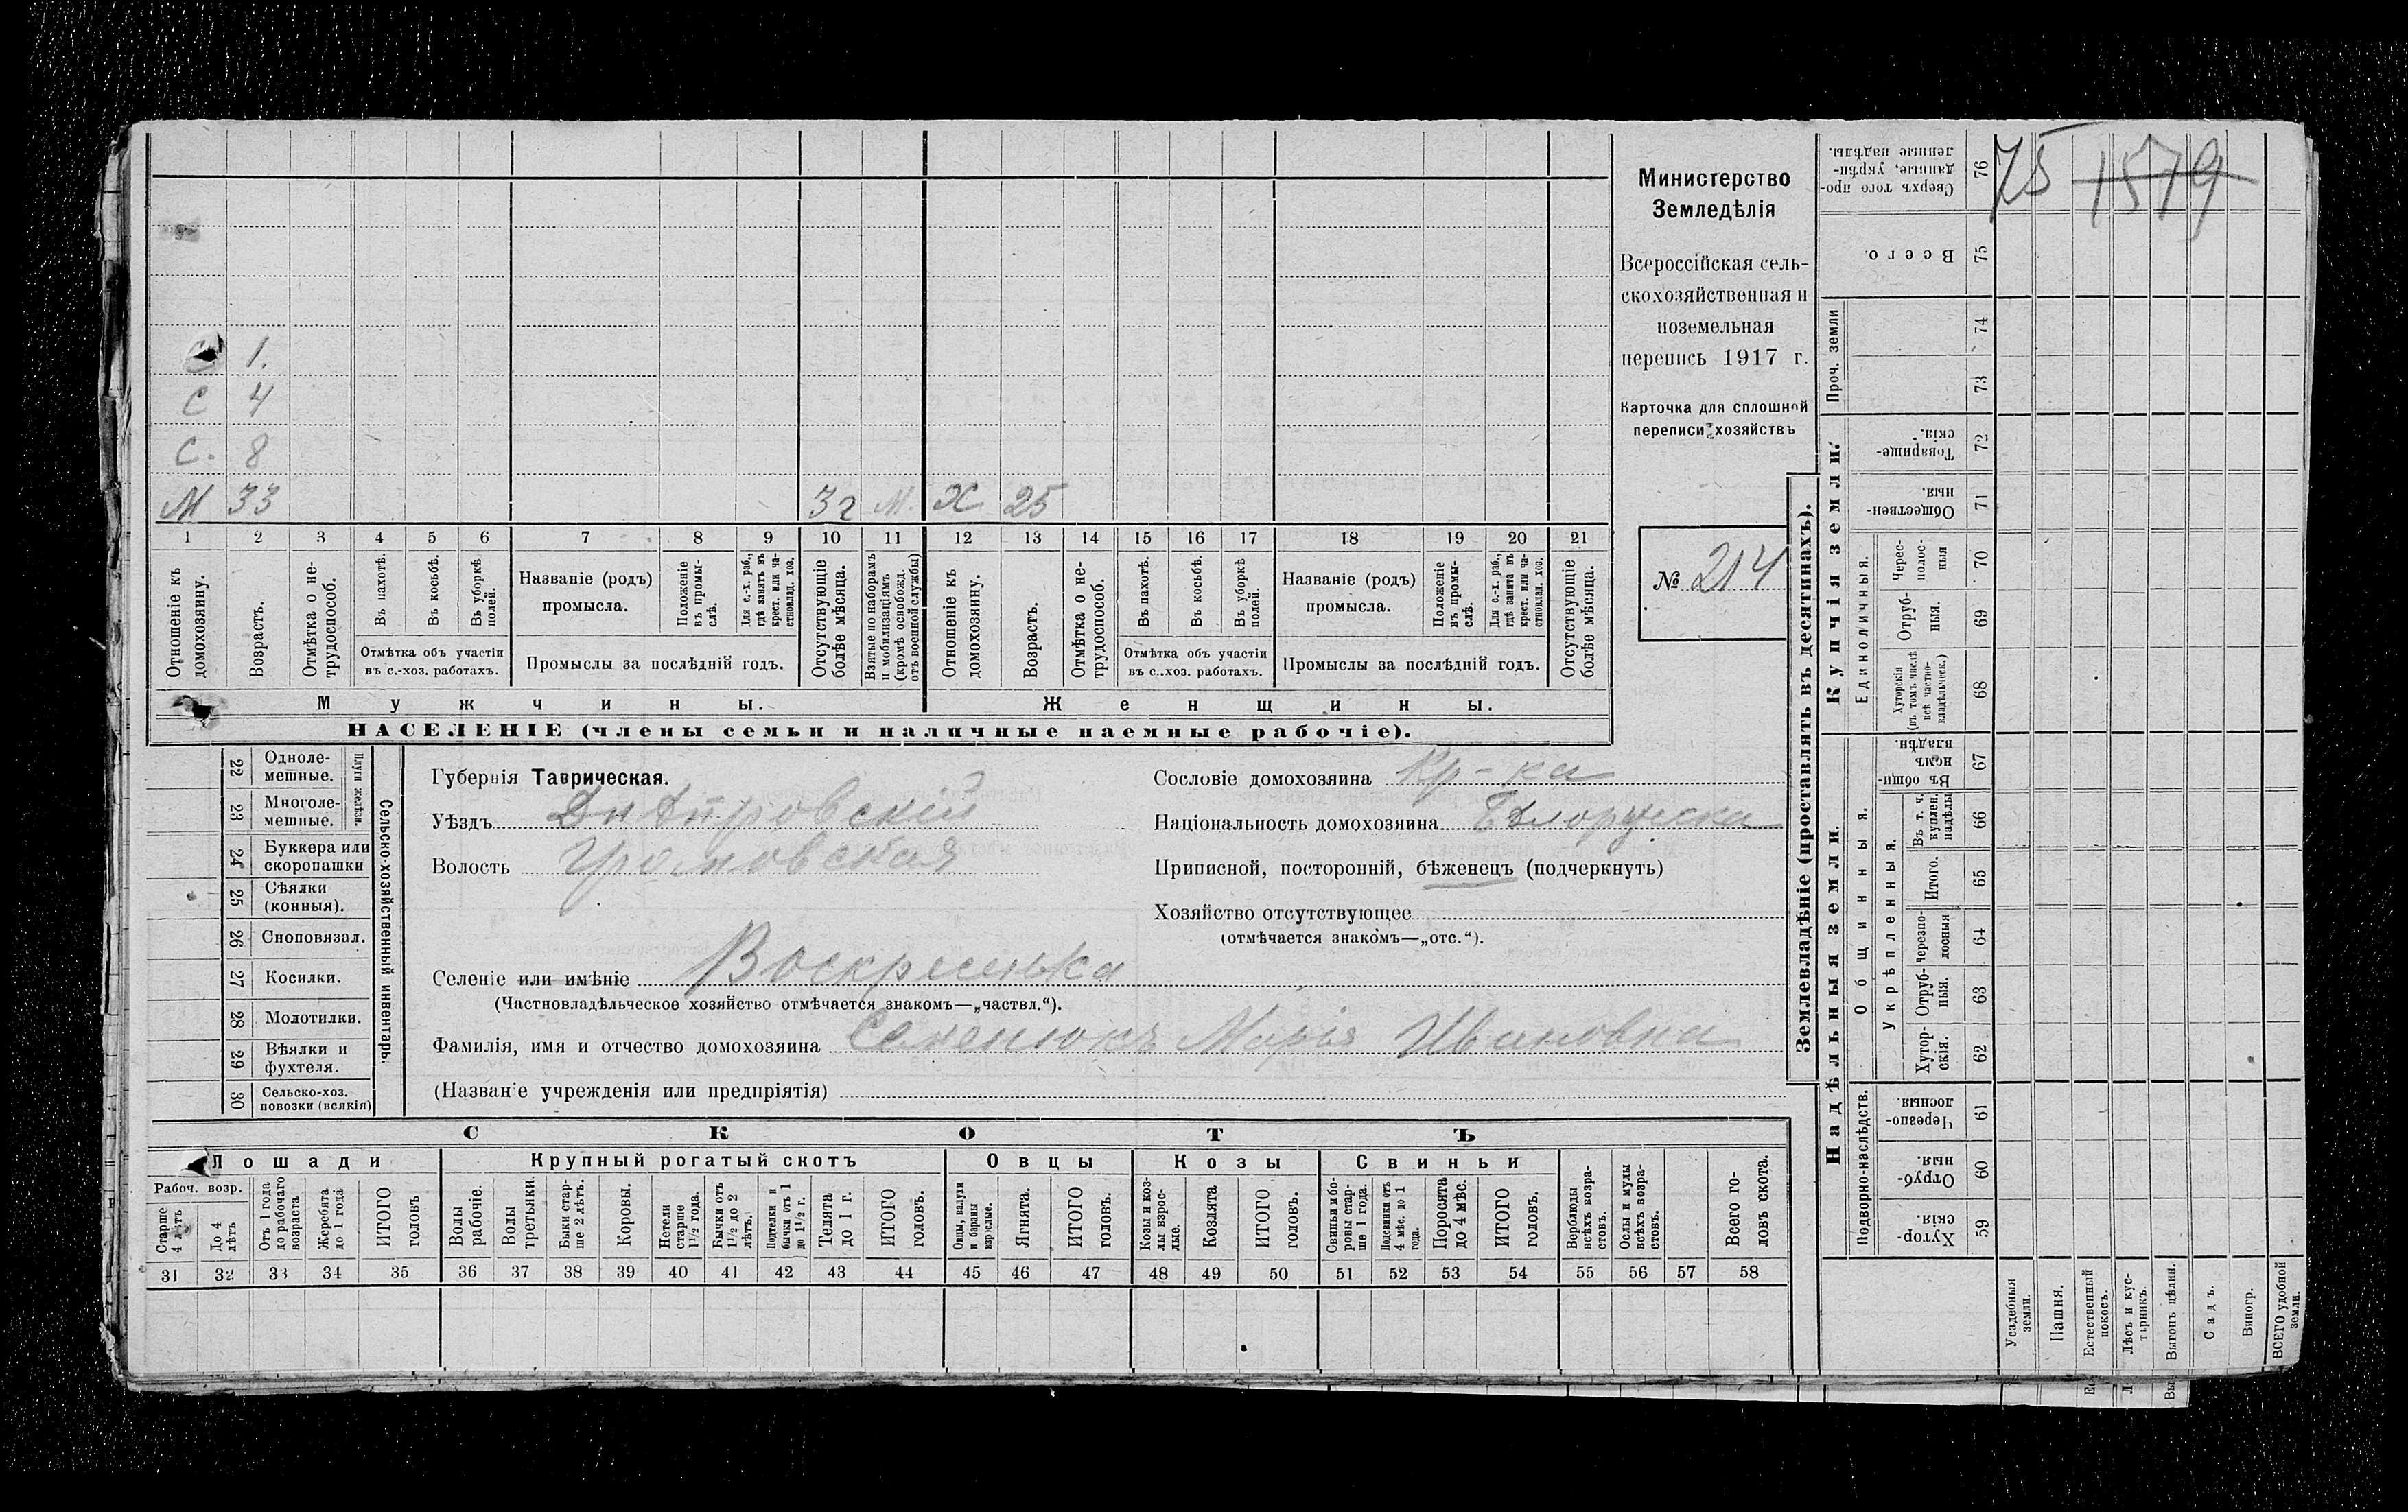 75 1579
Министерство
Земледѣлія
Всероссійская сель-
скохозяйственная и
поземельная
перепись 1917 г.
Карточка для сплошной
переписи хозяйствъ
№ 214
С 1.
С 4
С. 8
М 33 3г М. Х 25
1 2 3 4 5 6 7 8 9 10 11 12 13 14 15 16 17 18 19 20 21
Отношеніе къ домохозяину.
Возрастъ.
Отмѣтка о не-трудоспособ.
Въ пахотѣ.
Въ косьбѣ.
Въ уборкѣ полей.
Отмѣтка объ участіи
въ с.-хоз. работахъ.
Названіе (родъ)
промысла.
Положеніе въ промы-слѣ.
Для с.-х. раб., гдѣ занятъ въ крест. или ча-стновлад. хоз.
Промыслы за послѣдній годъ.
Отсутствующіе болѣе мѣсяца.
Взятые по наборамъ и мобилизаціямъ (кромѣ освобожд. отъ военной службы)
Отношеніе къ домохозяину.
Возрастъ.
Отмѣтка о не-трудоспособ.
Въ пахотѣ.
Въ косьбѣ.
Въ уборкѣ полей.
Отмѣтка объ участіи
въ с.-хоз. работахъ.
Названіе (родъ)
промысла.
Положеніе въ промы-слѣ.
Для с.-х. раб., гдѣ занята въ крест. или ча-стновлад. хоз.
Промыслы за послѣдній годъ.
Отсутствующіе болѣе мѣсяца.
Мужчины. Женщины.
НАСЕЛЕНІЕ (члены семьи и наличные наемные рабочіе).
Сельско-хозяйственный инвентарь.
Плуги желѣзн.
22 Одноле-мешные.
23 Многоле-мешные.
24 Буккера или скоропашки
25 Сѣялки (конныя).
26 Сноповязал.
27 Косилки.
28 Молотилки.
29 Вѣялки и фухтеля.
30 Сельско-хоз. повозки (всякія)
Губернія Таврическая.
Уѣздъ Днѣпровскій
Волость Громовская
Селеніе или имѣніе Воскресенка
(Частновладѣльческое хозяйство отмѣчается знакомъ—„частвл.“).
Фамилія, имя и отчество домохозяина Семенюкъ Марія Ивановна
(Названіе учрежденія или предпріятія)
Сословіе домохозяина кр-ка
Національность домохозяина Бѣлоруска
Приписной, посторонній, бѣженецъ (подчеркнуть)
Хозяйство отсутствующее
(отмѣчается знакомъ—„отс.“).
СКОТЪ
Лошади Крупный рогатый скотъ Овцы Козы Свиньи
Рабоч. возр.
Старше 4 лѣтъ
До 4 лѣтъ
Отъ 1 года до рабочаго возраста
Жеребята до 1 года
ИТОГО головъ
Волы рабочіе.
Волы третьяки.
Быки стар-ше 2 лѣтъ.
Коровы.
Нетели старше 1½ года.
Бычки отъ 1½ до 2 лѣтъ.
Подтелки и бычки отъ 1 до 1½ г.
Телята до 1 г.
ИТОГО головъ.
Овцы, валухи и бараны взрослые.
Ягнята.
ИТОГО головъ.
Козы и коз-лы взрос-лые.
Козлята
ИТОГО головъ.
Свиньи и бо-ровы стар-ше 1 года.
Подсвинки отъ 4 мѣс. до 1 года.
Поросята до 4 мѣс.
ИТОГО головъ.
Верблюды всѣхъ возра-стовъ.
Ослы и мулы всѣхъ возра-стовъ.
Всего го-ловъ скота.
31 32 33 34 35 36 37 38 39 40 41 42 43 44 45 46 47 48 49 50 51 52 53 54 55 56 57 58
Землевладѣніе (проставлять въ десятинахъ).
Надѣльныя земли.
Купчія земли.
Проч. земли
Подворно-наслѣдств.
Общинныя.
Укрѣпленныя.
Единоличныя.
Сверхъ того про-данные, укрѣп-ленные надѣлы. 76
Всего. 75
74
73
Товарище-скія. 72
Обществен-ныя. 71
Черес-полос-ныя 70
Отруб-ныя. 69
Хуторскія (въ томъ числѣ всѣ частно-владѣльческ.) 68
Въ общин-номъ владѣн. 67
Въ т. ч. куплен. надѣлы 66
Итого. 65
черезпо-лосныя 64
Отруб-ныя. 63
Хутор-скія. 62
Черезпо-лосныя 61
Отруб-ныя. 60
Хутор-скія. 59
Усадебныя земли.
Пашня.
Естественный покосъ.
Лѣсъ и кус-тарникъ.
Выгонъ цѣлин.
Садъ.
Виногр.
ВСЕГО удобной земли.